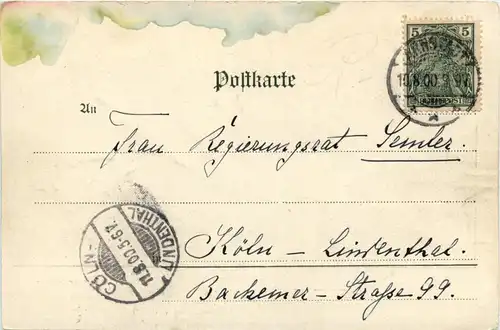 5 5
10.8.00.
Postkarte
An
Frau Regierungsrat Semler.
CÖLN - LINDENTHAL
11.8.00.5-6.V.
Köln - Lindenthal.
Bachemer - Straße 99.